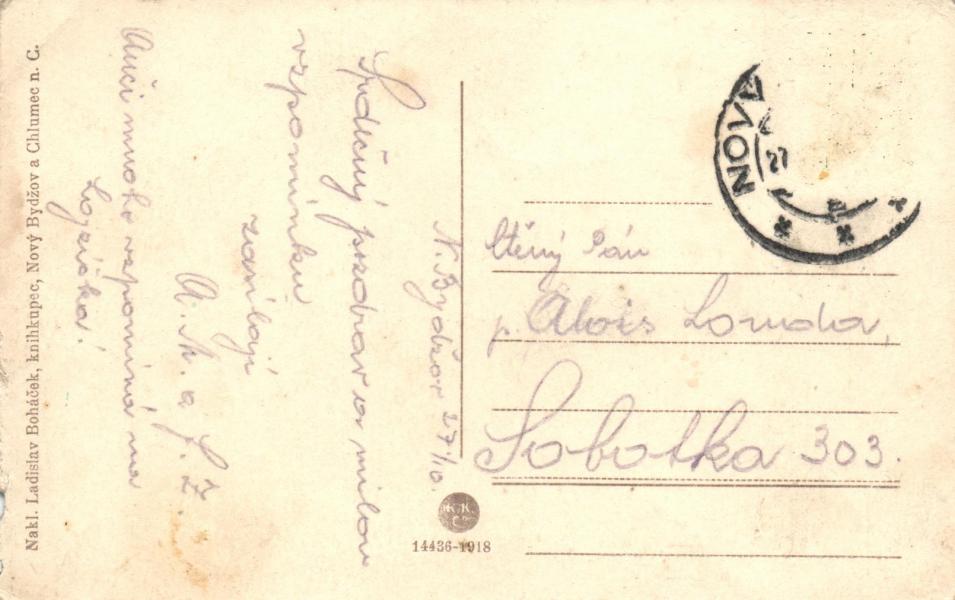 Nakl. Ladislav Boháček, knihkupec, Nový Bydžov a Chlumec n. C.
N. Bydžov 27/10.
Srdečný pozdrav a milou
vzpomínku
zasílají
A. K. a J. Z.
Anči mnoho vzpomíná na
Lojzíčka!
14436-1918
NOVÝ
27
Ctěný Pán
p. Alois Louda,
Sobotka 303.